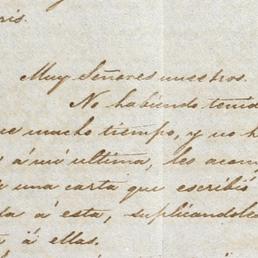 ris.
Muy Señores nuestros.
No habiendo tenid
ce mucho tiempo, y no h
á mi ultima, les acom
una carta que escribió
ta á esta, suplicandole
á ellas.